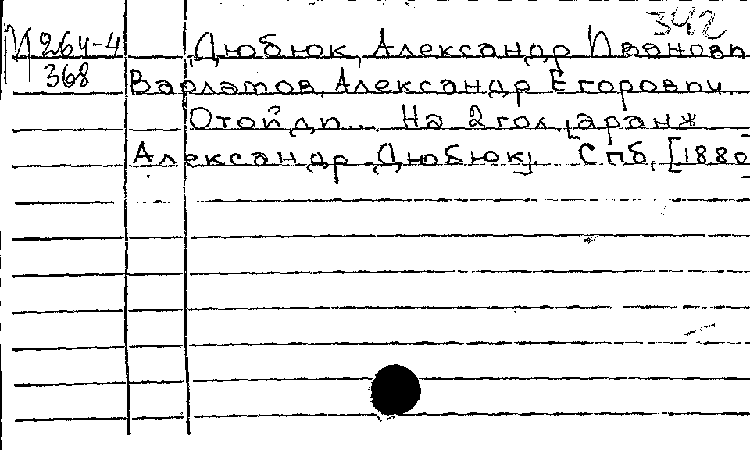 342
М 264-4 Дюбюк, Александр Иванови
368 Варламов, Александр Егорович.
Отойди... На 2 гол. [аранж
Александр Дюбюк]. Спб, [1880]